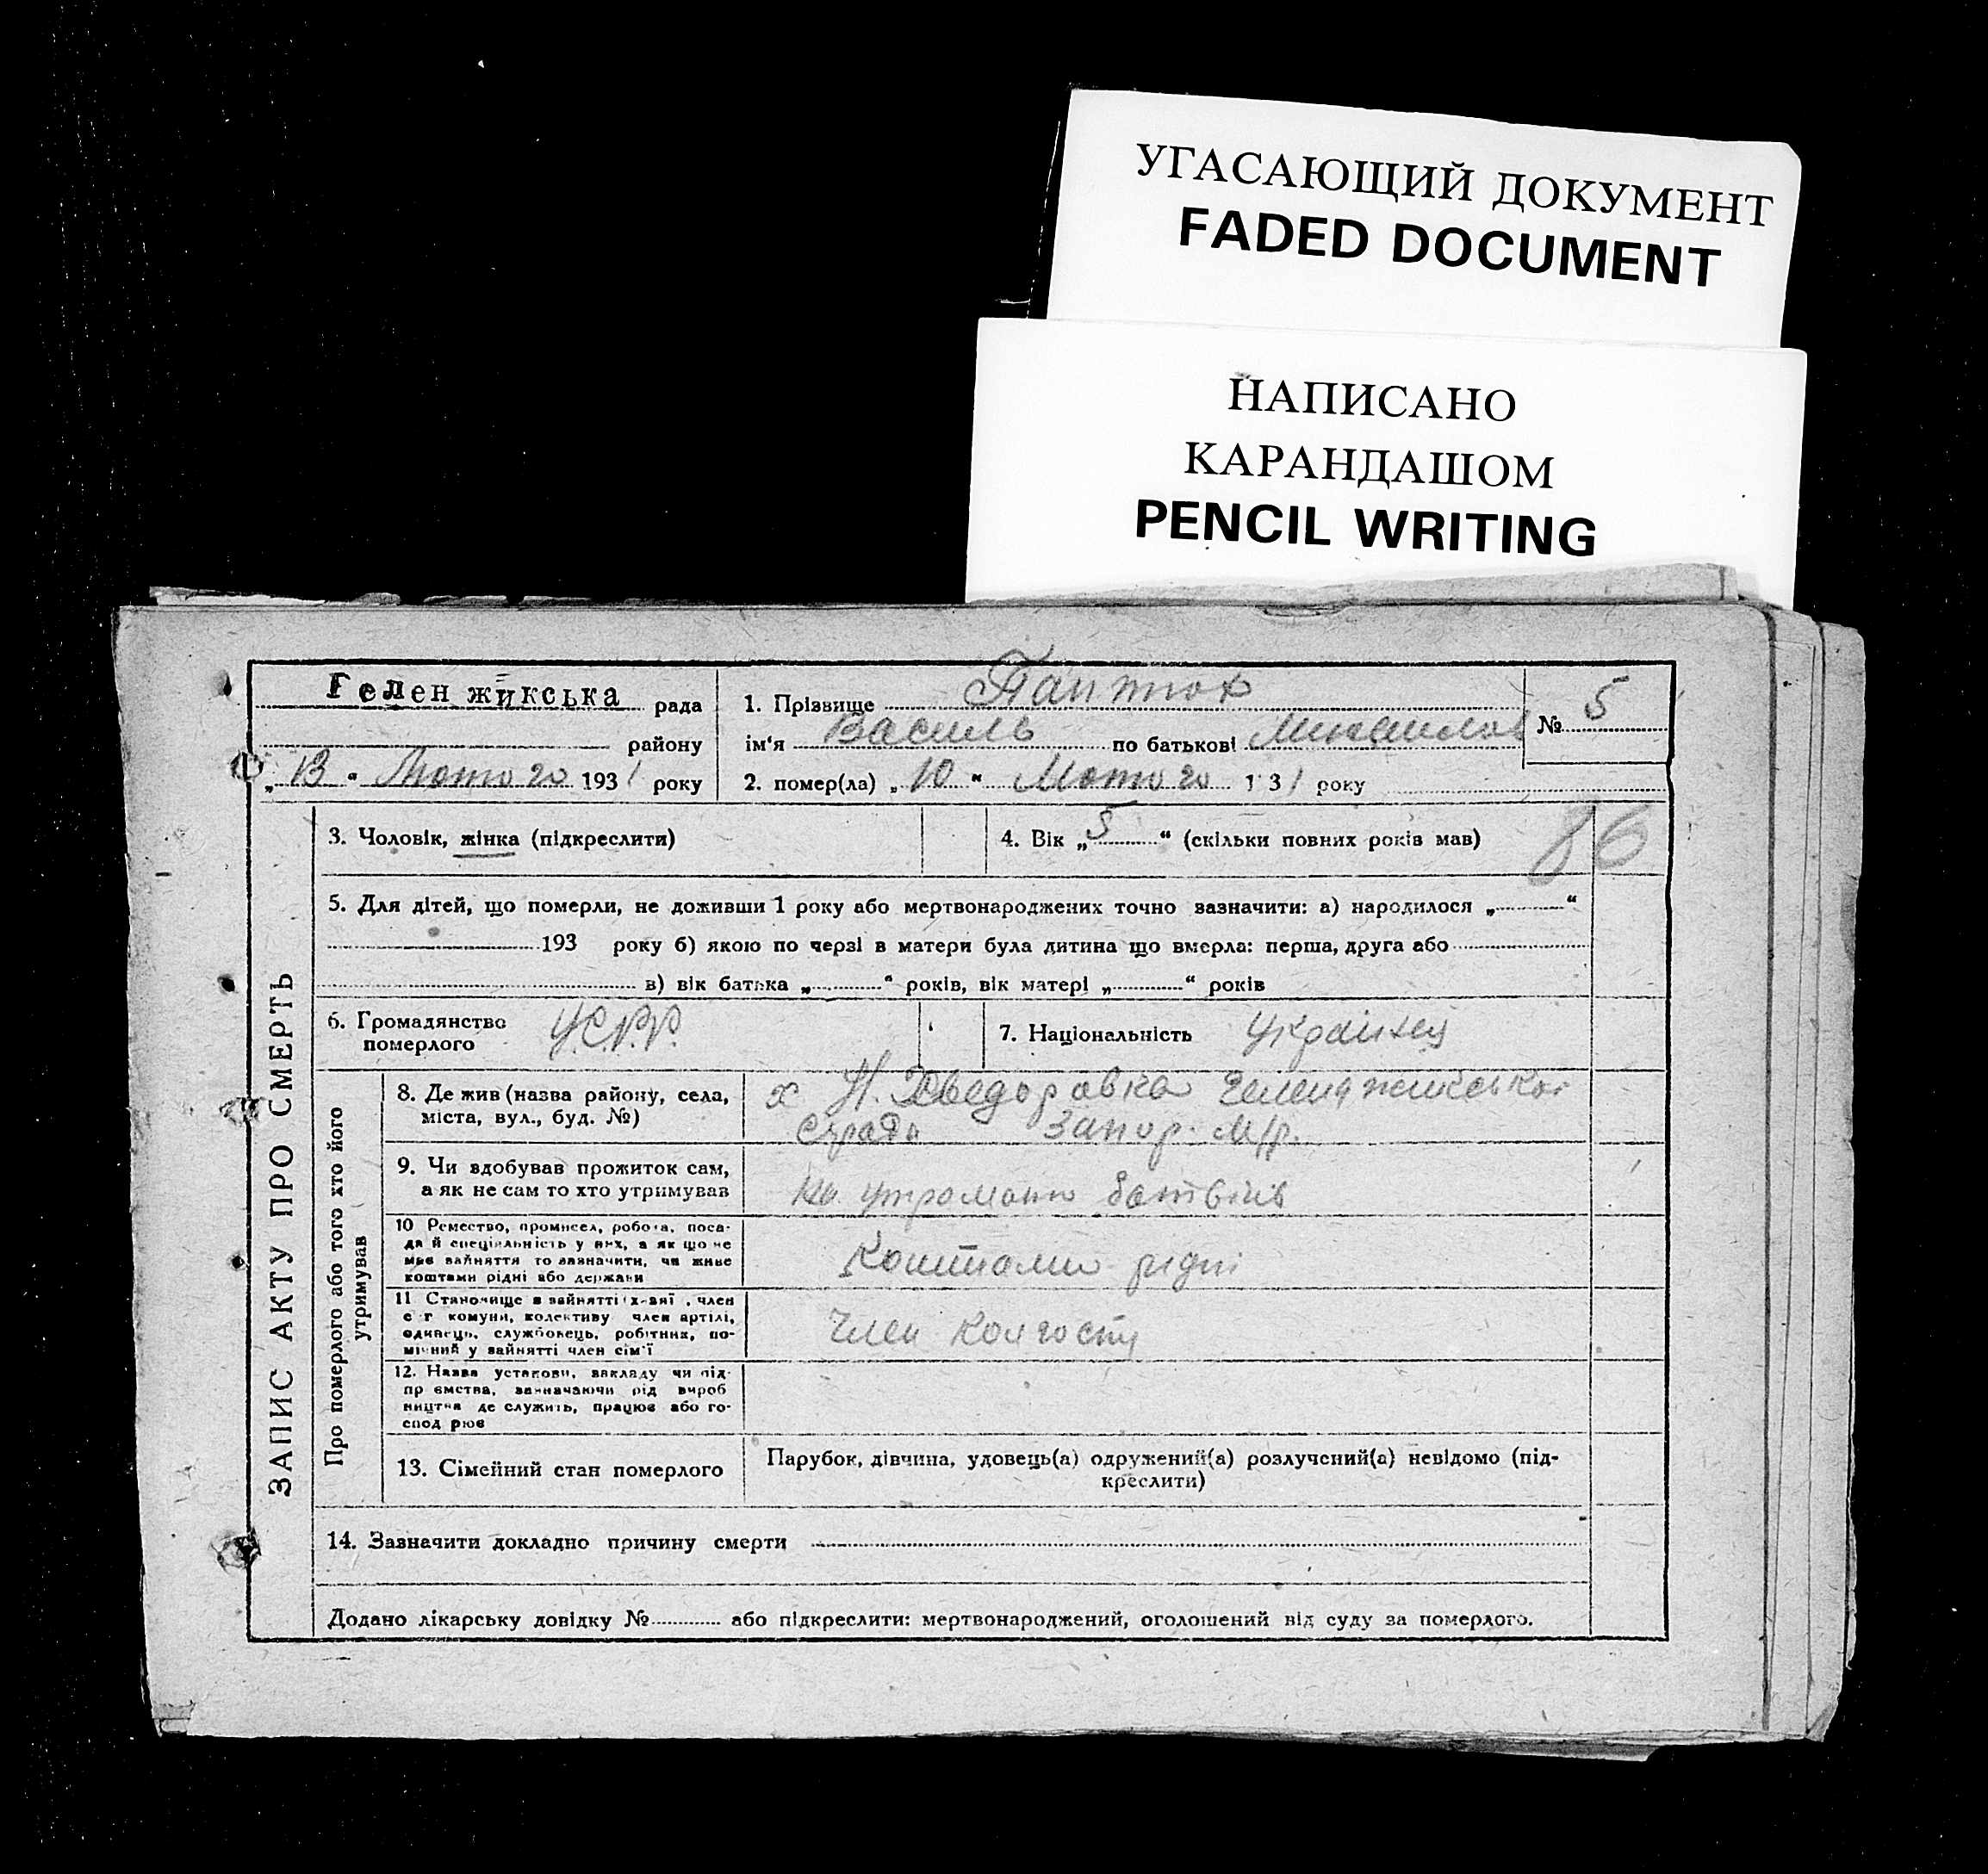 УГАСАЮЩИЙ ДОКУМЕНТ
FADED DOCUMENT
НАПИСАНО
КАРАНДАШОМ
PENCIL WRITING
Гелен жикська рада
району
„13“ Лютого 1931 року
1. Прізвище
ім'я Василь по батькові
2. помер(ла) „10“ Лютого 1 31 року
№ 5
86
ЗАПИС АКТУ ПРО СМЕРТЬ
3. Чоловік, жінка (підкреслити)
4. Вік „5“ (скільки повних років мав)
5. Для дітей, що померли, не доживши 1 року або мертвонароджених точно зазначити: а) народилося „ “
193 року б) якою по черзі в матери була дитина що вмерла: перша, друга або
в) вік батька „ “ років, вік матері „ “ років
6. Громадянство
померлого
У.С.Р.Р.
7. Національність Українец
Про померлого або того хто його
утримував
8. Де жив (назва району, села,
міста, вул., буд. №)
х Н. Хведоровка
с/ради Запор. М/р.
9. Чи вдобував прожиток сам,
а як не сам то хто утримував
На утромани батьків
10 Ремество, промисел, робота, поса-
да й спеціяльність у них, а як що не
має зайняття то зазначити, чи живе
коштами рідні або держави
Коштами рідні
11 Становище в зайнятті х-заї , член
с г комуни, колективу член артілі,
одинець, службовець, робітник, по-
мічний у зайнятті член сім'ї
Член колгоспу
12. Назва установи, закладу чи під-
пр ємства, зазначаючи рід вироб
ництва де служить, працює або го-
спод рює
13. Сімейний стан померлого
Парубок, дівчина, удовець(а) одружений(а) розлучений(а) невідомо (під-
креслити)
14. Зазначити докладно причину смерти
Додано лікарську довідку № або підкреслити: мертвонароджений, оголошений від суду за померлого.